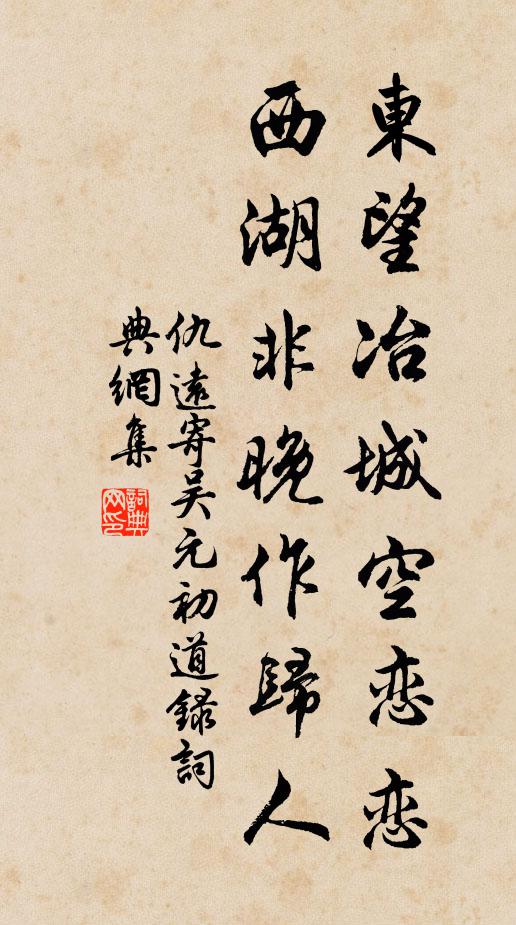 東望冶城空恋恋
西湖非晚作歸人
仇遠寄吴元初道録詞
典網集
詞典
网印